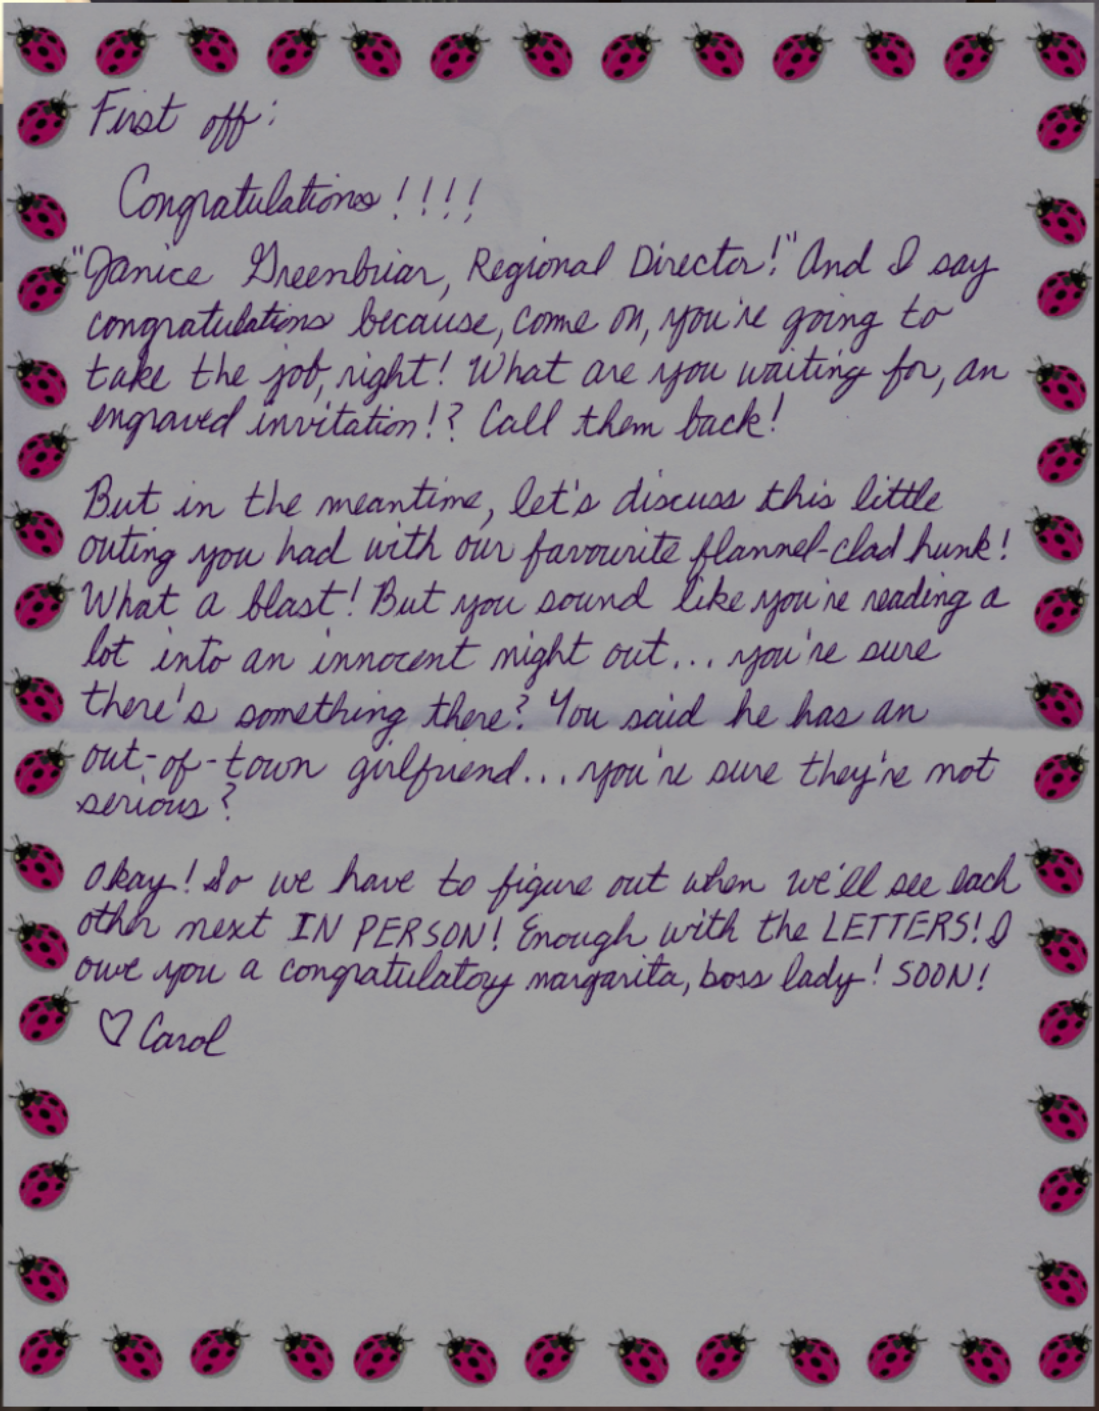 First off:
Congratulations!!!!
"Janice Greenbriar, Regional Director!" And I say
congratulations because, come on, you're going to
take the job, right! What are you waiting for, an
engraved invitation!? Call them back!
But in the meantime, let's discuss this little
outing you had with our favourite flannel-clad hunk!
What a blast! But you sound like you're reading a
lot into an innocent night out... you're sure
there's something there? You said he has an
out-of-town girlfriend... you're sure they're not
serious?
Okay! So we have to figure out when we'll see each
other next IN PERSON! Enough with the LETTERS! I
owe you a congratulatory margarita, boss lady! SOON!
♡ Carol